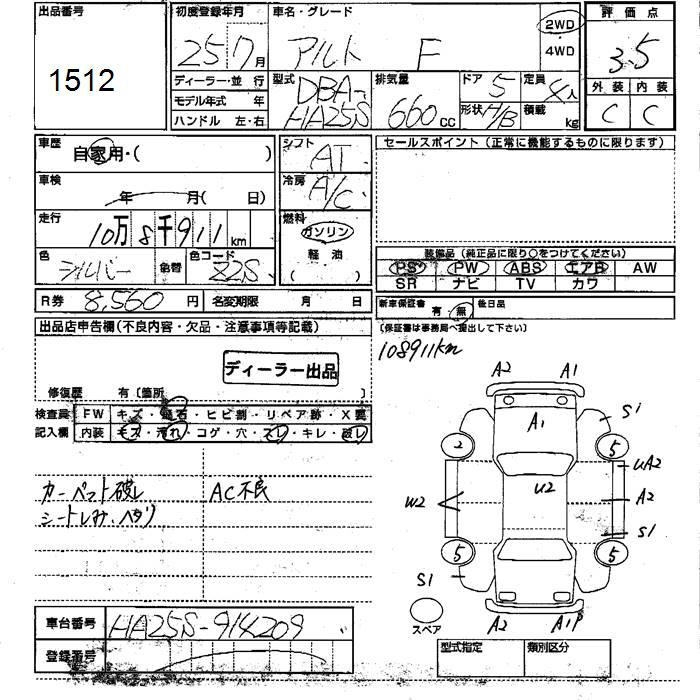 出品番号
1512
初度登録年月
25 7月
車名・グレード
アルト F
2WD
4WD
評価点
3.5
ディーラー・並行
モデル年式 年
ハンドル 左・右
型式
DBA-
HA25S
排気量
660cc
ドア 5
形状 H/B
定員 4人
積載 kg
外装 内装
C C
車歴
自家用・( )
車検
年 月( 日)
走行
10万8千911km
色
シルバー
色替
色コード
Z2S
シフト
AT
冷房
A/C
燃料
ガソリン
軽油
( )
セールスポイント(正常に機能するものに限ります)
装備品(純正品に限り○をつけてください)
PS PW ABS エアB AW
SR ナビ TV カワ
R券 8,560円
名変期限 月 日
新車保証書 有・無
後日品
(保証書は事務局へ提出して下さい)
108911km
出品店申告欄(不良内容・欠品・注意事項等記載)
ディーラー出品
修復歴 有(箇所 )
検査員
記入欄
FW キズ・飛石・ヒビ割・リペア跡・X要
内装 キズ・汚れ・コゲ・穴・スレ・キレ・破レ
カーペット破レ
シートしみ、ヘタリ
AC不良
A2 A1
A1
S1
2 5
UA2
W2
U2
A2
S1
5 5
S1
スペア
A2 A1P
車台番号
HA25S-914209
登録番号
型式指定
類別区分